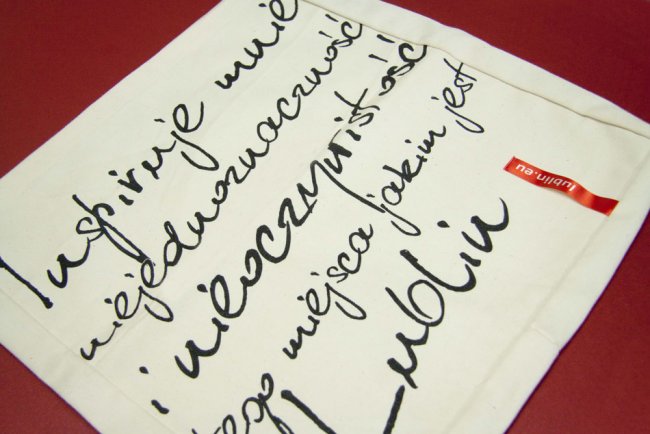 Inspiruje mnie
niejednoznaczność
i nieoczywistość
tego miejsca jakim jest
Lublin
lublin.eu